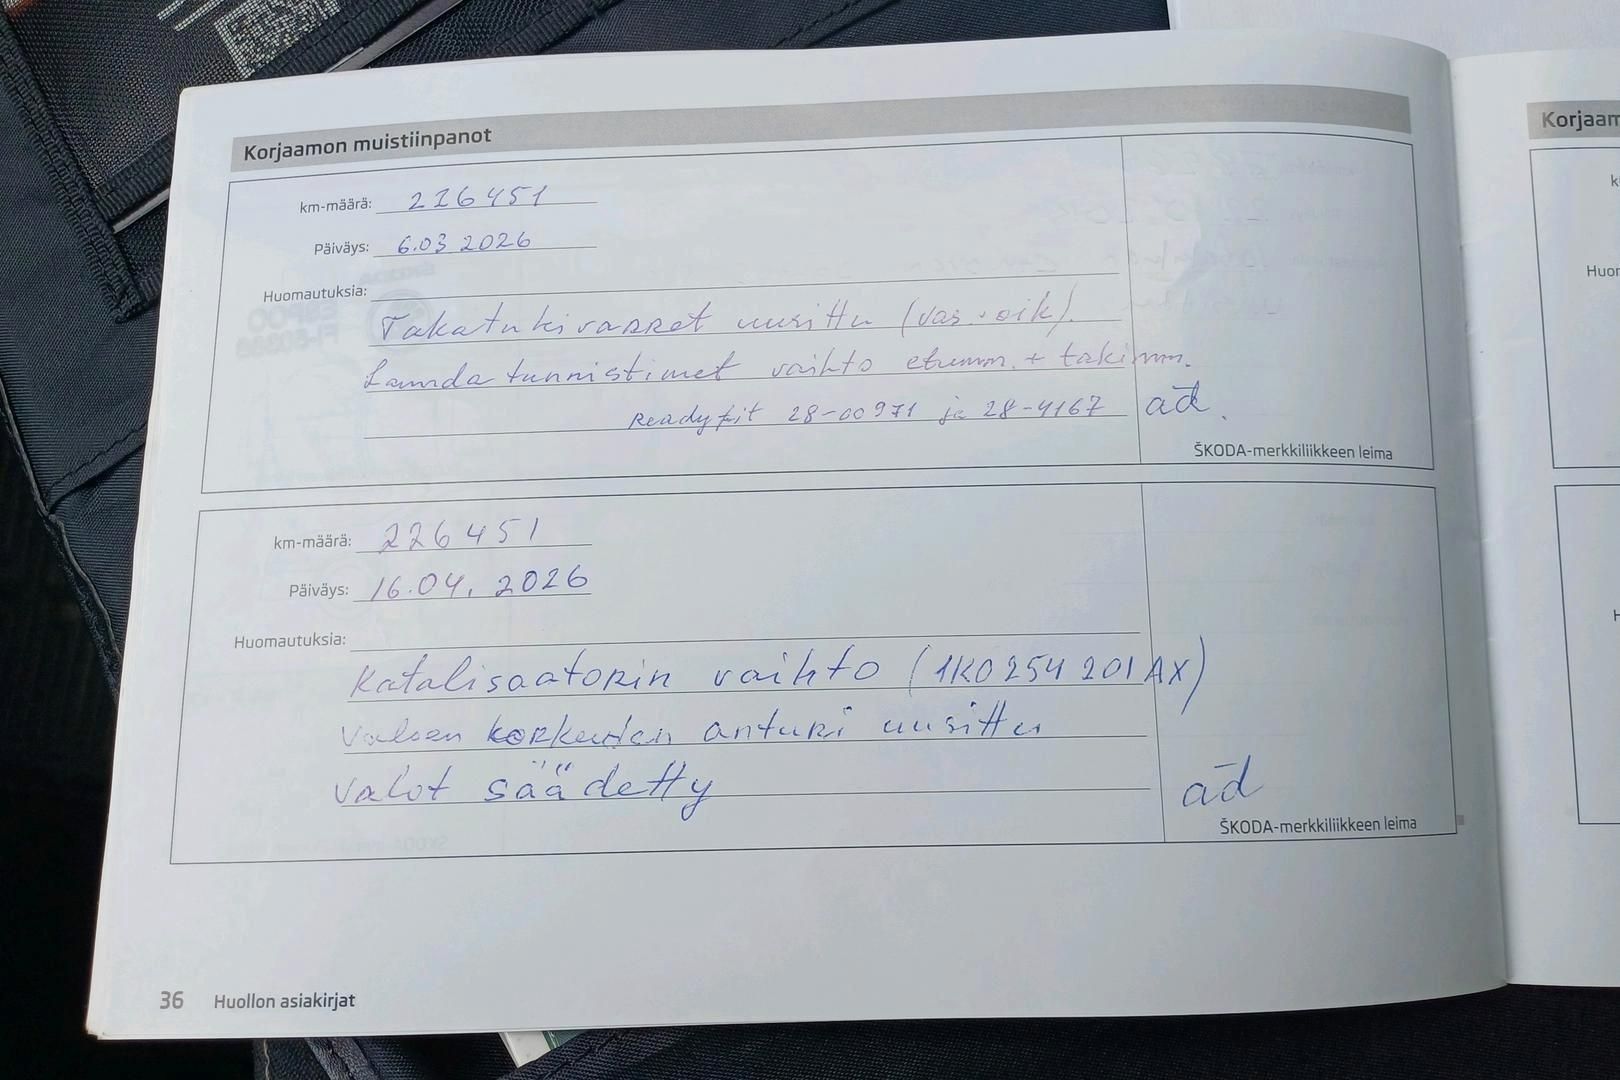 Korjaamon muistiinpanot
km-määrä: 226451
Päiväys: 6.03 2026
Huomautuksia:
Takatukivarret uusittu (vas. oik).
Lamda tunnistimet vaihto etumm. + takimm.
Readyfit 28-00971 ja 28-4167 ad.
ŠKODA-merkkiliikkeen leima
km-määrä: 226451
Päiväys: 16.04. 2026
Huomautuksia:
Katalisaatorin vaihto (1K0254201AX)
Valoen korkeuden anturi uusittu
Valot säädetty
ad
ŠKODA-merkkiliikkeen leima
36 Huollon asiakirjat
Korjaam